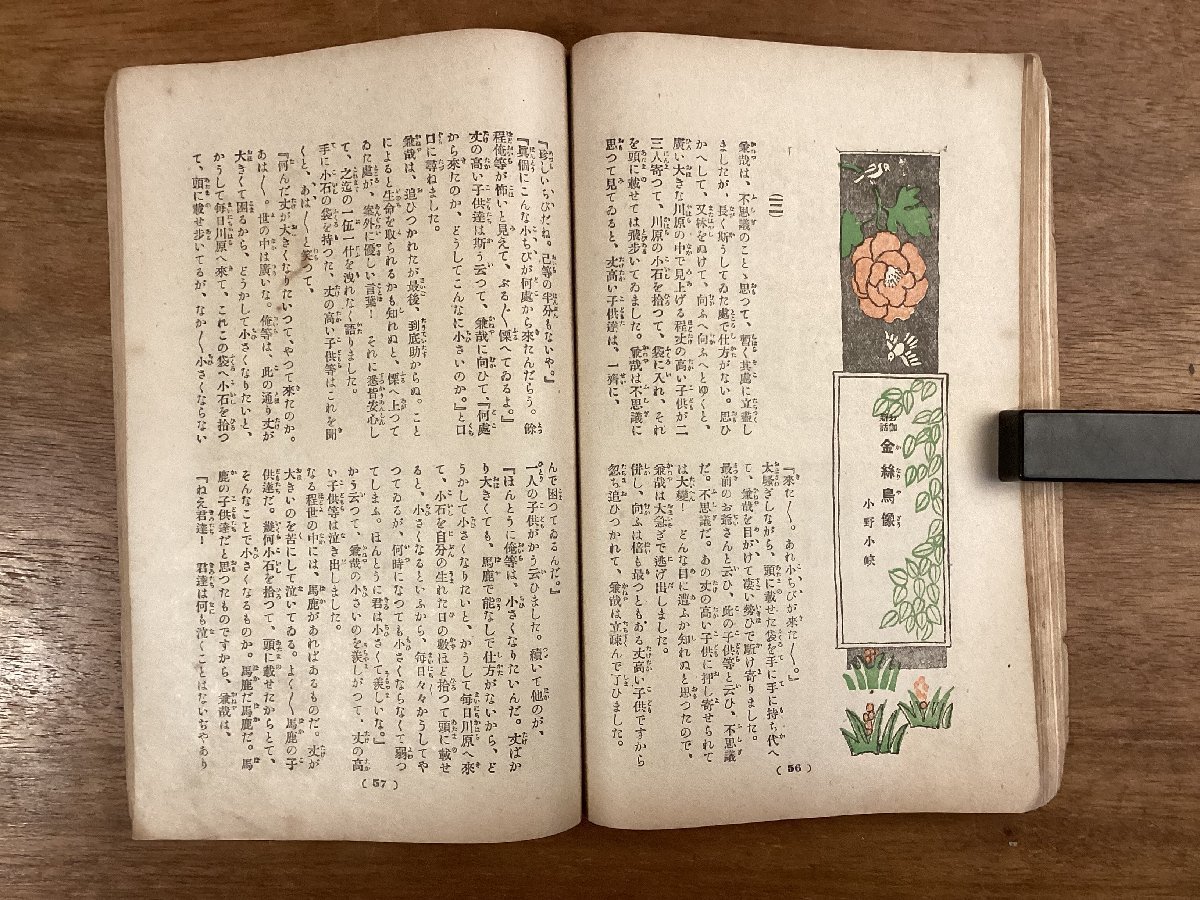 お伽新話
金絲鳥像
小野小峽
(二)
兼哉は、不思議のことゝ思つて、暫く其處に立盡し
ましたが、長く斯うしてゐた處で仕方がない。思ひ
かへして、又林をぬけて、向ふへ向ふへとゆくと、
廣い大きな川原の中で見上げる程丈の高い子供が二
三人寄つて、川原の小石を拾つて、袋に入れ、それ
を頭に載せては飛歩いてゐました。兼哉は不思議に
思つて見てゐると、丈高い子供達は、一齊に、
『來た〳〵。あれ小ちびが來た〳〵。』
太騷ぎしながら、頭に載せた袋を手に手に持ち代へ
て、兼哉を目がけて凄い勢ひで駈け寄りました。
最前のお爺さんと云ひ、此の子供等と云ひ、不思議
だ。不思議だ。あの丈の高い子供に押し寄せられて
は大變！どんな目に遭ふか知れぬと思つたので、
兼哉は大急ぎで逃げ出しました。
併し、向ふは倍も最つともある丈高い子供ですから
忽ち追ひつかれて、兼哉は立竦んで了ひました。
(56)
『珍しいちびだね。己等の半分もないや。』
『眞個にこんな小ちびが何處から來たんだらう。餘
程俺等が怖いと見えて、ぶる〳〵慄へてゐるよ。』
丈の高い子供達は斯う云つて、兼哉に向ひて、『何處
から來たのか、どうしてこんなに小さいのか。』と口
口に尋ねました。
兼哉は、追ひつかれたが最後、到底助からぬ。こと
によると生命を取られるかも知れぬと、慄へ上つて
ゐた處が、案外に優しい言葉！それに悉皆安心し
て、之迄の一伍一什を洩れなく語りました。
手に小石の袋を持つた、丈の高い子供等はこれを聞
くと、あは〳〵と笑つて、
『何んだ丈が大きくなりたいつて、やつて來たのか。
あは〳〵。世の中は廣いな。俺等は、此の通り丈が
大きくて困るから、どうかして小さくなりたいと、
かうして毎日川原へ來て、これこの袋へ小石を拾つ
て、頭に載せ歩いてるが、なか〳〵小さくならない
んで困つてゐるんだ。』
一人の子供がかう云ひました。續いて他のが、
『ほんとうに俺等は、小さくなりたいんだ。丈ばか
り大きくても、馬鹿で能なしで仕方がないから、ど
うかして小さくなりたいと、かうして毎日川原へ來
て、小石を自分の生れた日の數ほど拾つて頭に載せ
ると、小さくなるといふから、毎日々々かうしてや
つてゐるが、何時になつても小さくならなくて弱つ
てしまふ。ほんとうに君は小さくて羨しいな。』
かう云つて、兼哉の小さいのを羨しがつて、丈の高
い子供等は泣き出しました。
なる程世の中には、馬鹿があればあるものだ。丈が
大きいのを苦にして泣いてゐる。よく〳〵馬鹿の子
供達だ。幾何小石を拾つて、頭に載せたからとて、
そんなことで小さくなるものか。馬鹿だ馬鹿だ。馬
鹿の子供達だと思つたものですから、兼哉は、
『ねえ君達！君達は何も泣くことはないぢやあり
(57)